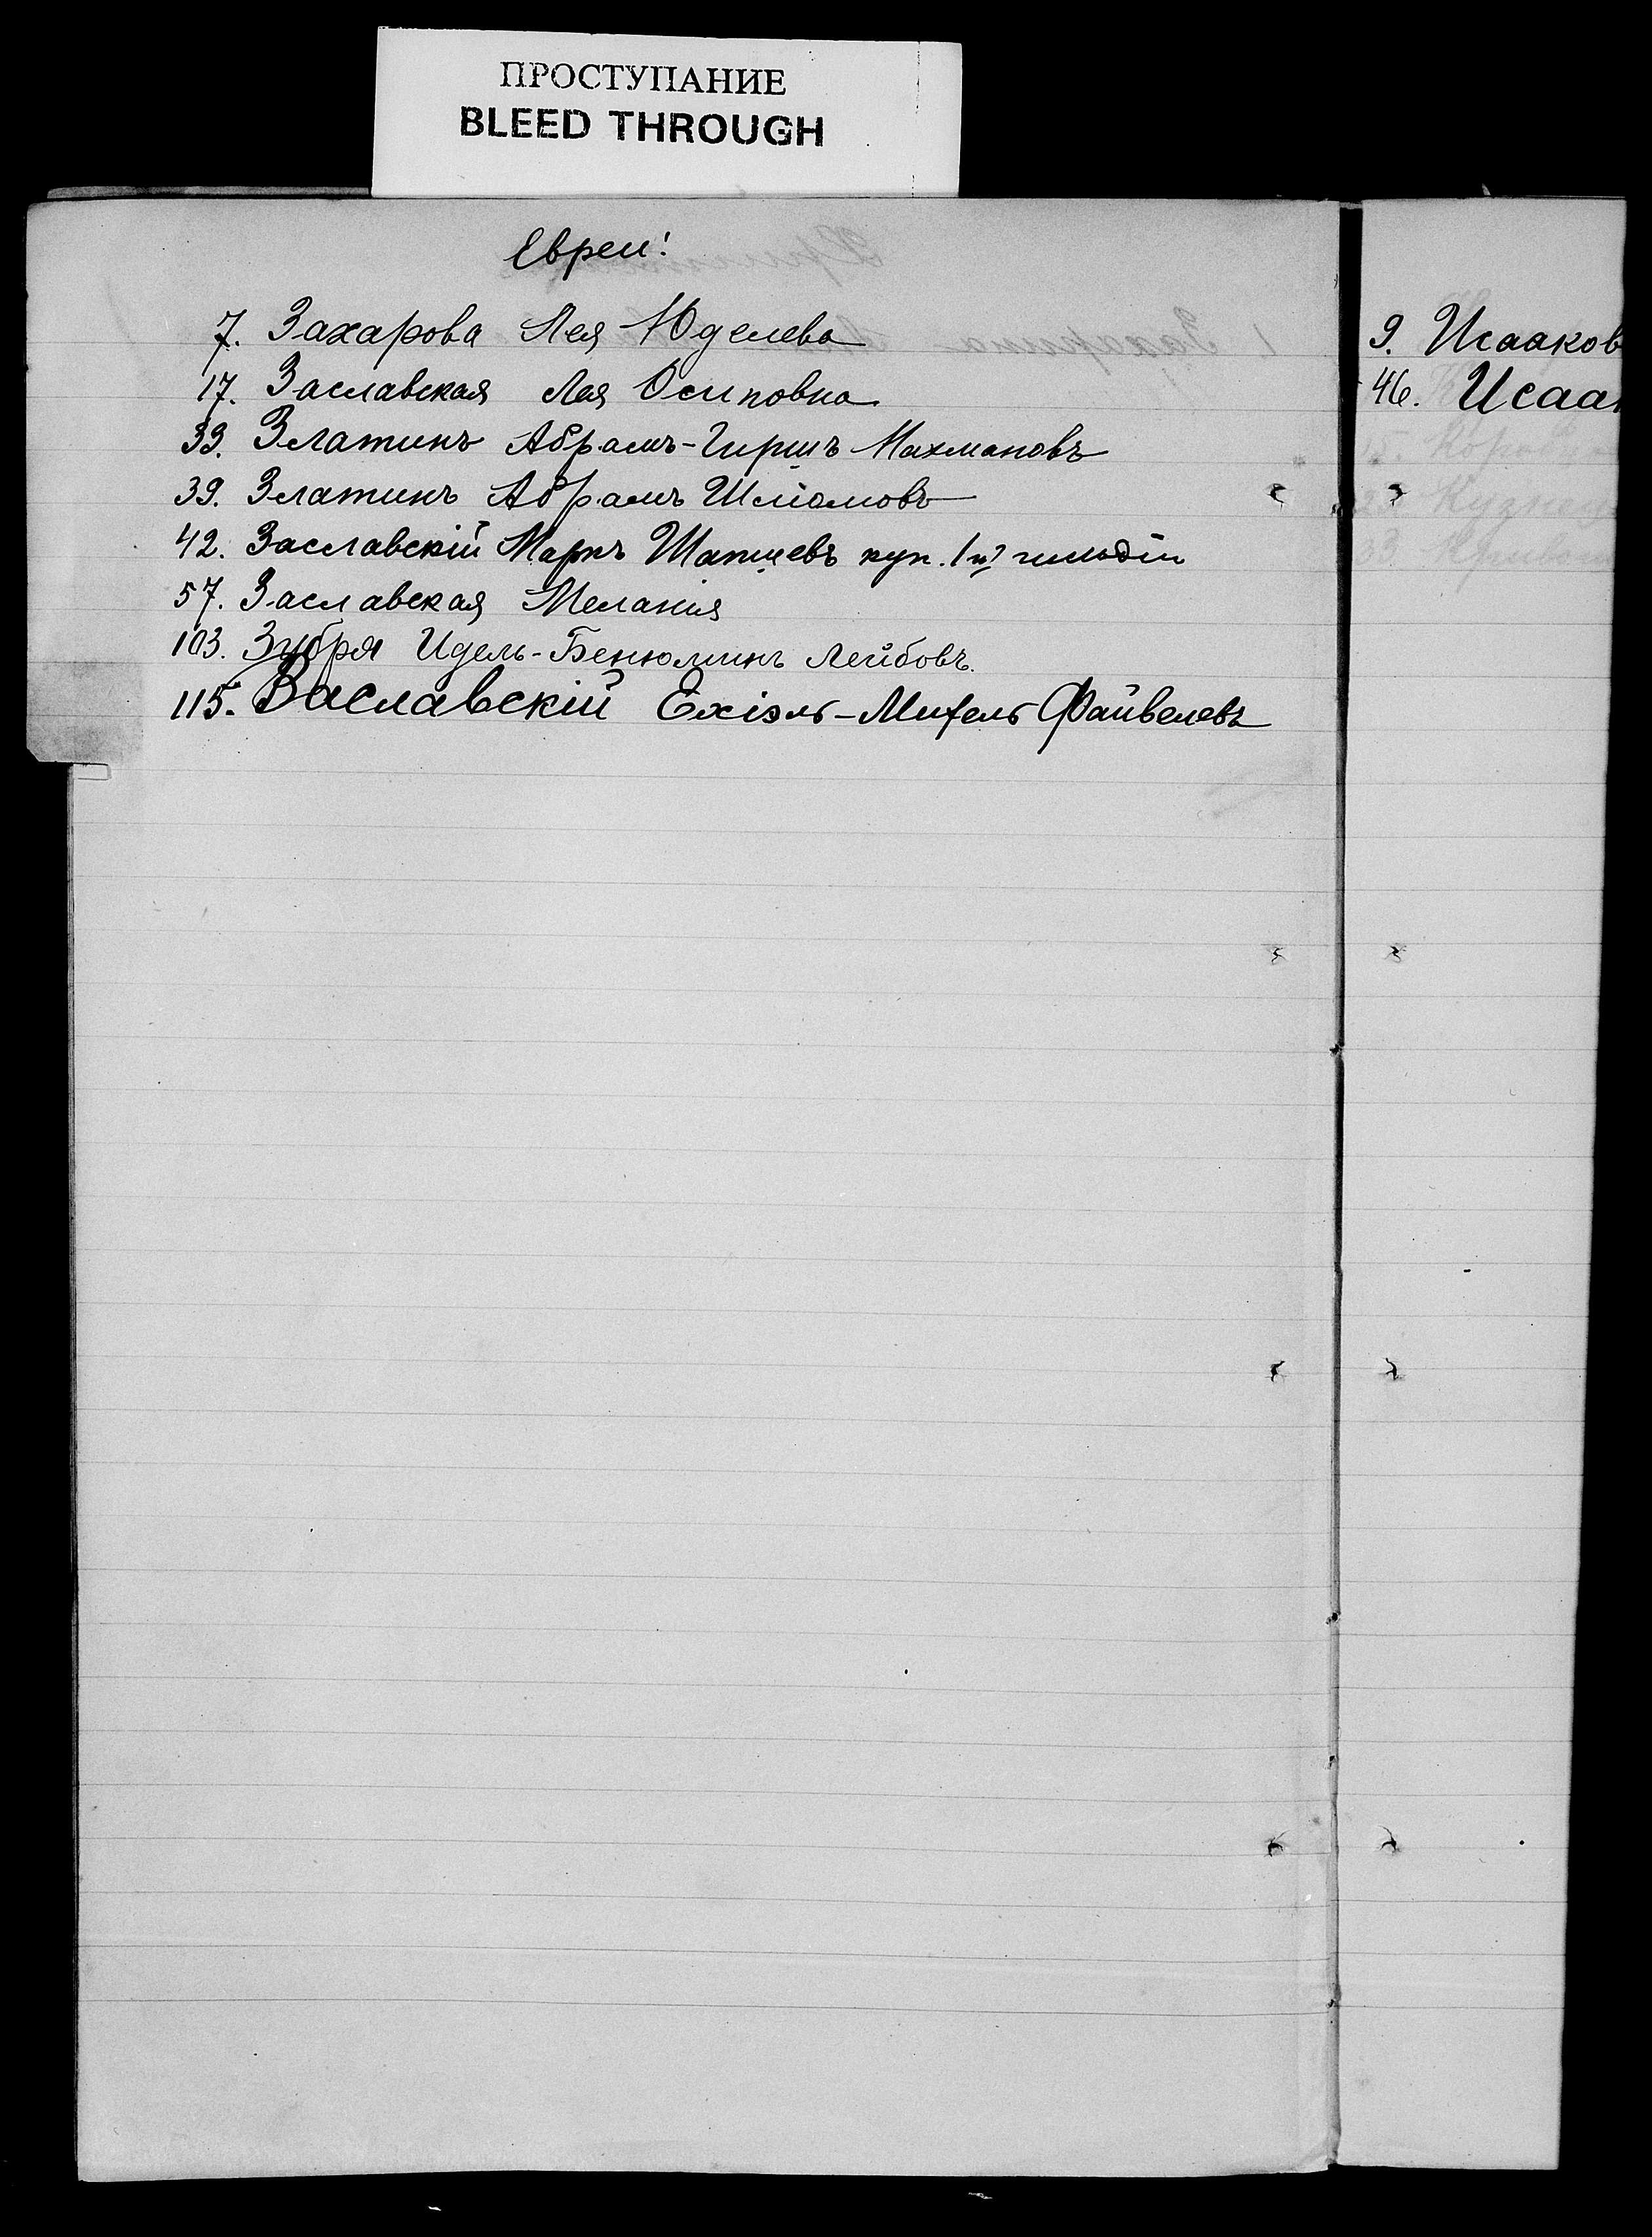 ПРОСТУПАНИЕ
BLEED THROUGH
Евреи:
7. Захарова Лея Юделева
17. Заславская Лея Осиповна
33. Златинъ Абрамъ-Гиршъ Нахмановъ
39. Златинъ Абрамъ Шліомовъ
42. Заславскій Маркъ Шапшевъ куп. 1й гильдіи
57. Заславская Меланія
103. Зубря Идель-Бенюминъ Лейбовъ.
115. Заславскій Ехіэль-Михель Файвелевъ
9. Исааков
46. Исаак